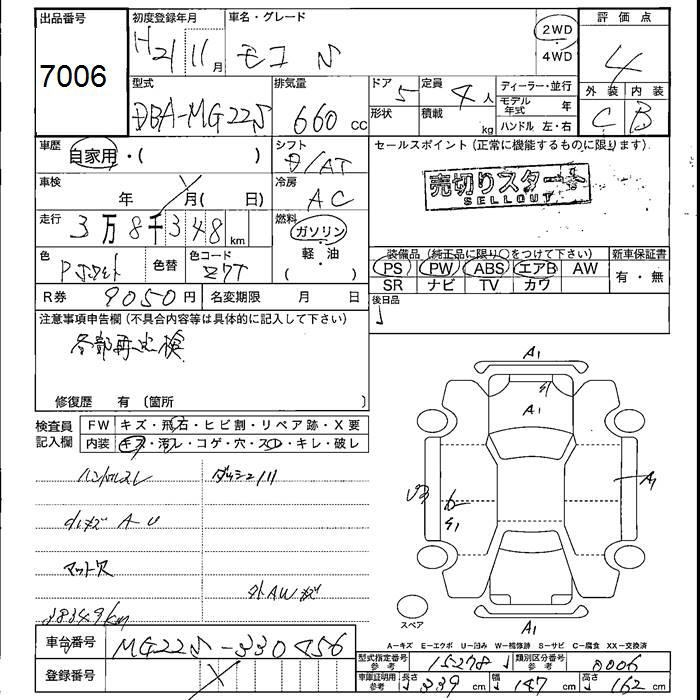 出品番号
7006
初度登録年月
H21 11月
車名・グレード
モコ
2WD
4WD
評価点
4
外装 内装
C B
型式
DBA-MG22S
排気量
660 cc
ドア 5
形状
定員 4人
積載 kg
ディーラー・並行
モデル年式 年
ハンドル 左・右
車歴
自家用・( )
シフト
/AT
車検
年 月( 日)
冷房
AC
走行
3万8千348 km
燃料
ガソリン
軽・油
( )
色
色替
色コード
Z7T
R券 9050円
名変期限 月 日
セールスポイント(正常に機能するものに限ります)
売切りスター
SELLOUT
装備品(純正品に限り○をつけて下さい)
PS PW ABS エアB AW
SR ナビ TV カワ
新車保証書
有・無
後日品
注意事項申告欄(不具合内容等は具体的に記入して下さい)
各部再点検
修復歴 有〔箇所 〕
検査員記入欄
FW キズ・飛石・ヒビ割・リペア跡・X要
内装 キズ・汚レ・コゲ・穴・スレ・キレ・破レ
ハンドルスレ
マット穴
外AWキズ
38349km
A1
A1
A1
A1
スペア
A-キズ E-エクボ U-凹み W-補修跡 S-サビ C-腐食 XX-交換済
車台番号 MG22S-330856
登録番号
型式指定番号 参考 15278
類別区分番号 参考 0006
車庫証明用 参考 長さ 339 cm 幅 147 cm 高さ 162 cm